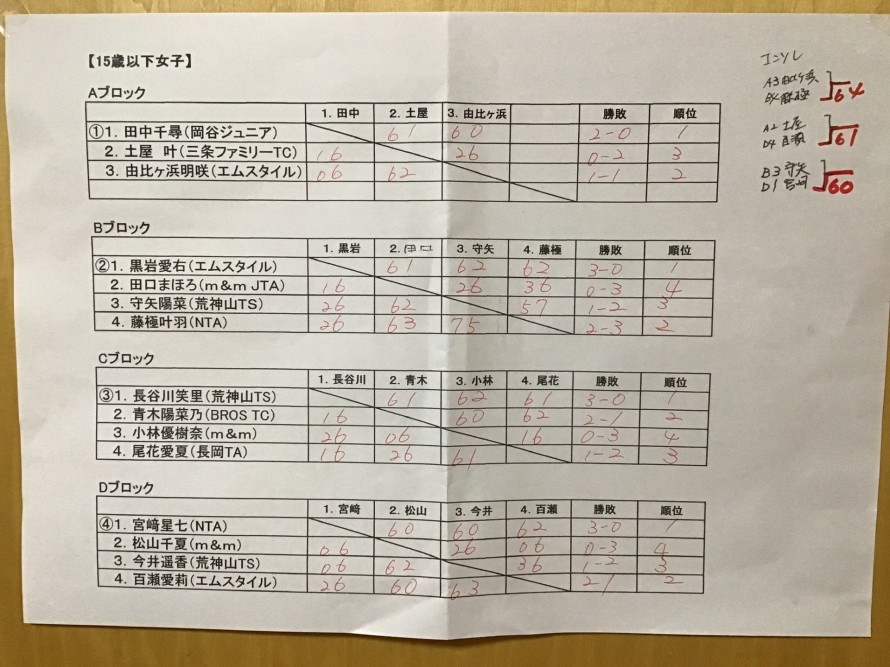 【15歳以下女子】
Aブロック
1. 田中 2. 土屋 3. 由比ヶ浜 勝敗 順位
①1. 田中千尋(岡谷ジュニア) 61 60 2-0 1
2. 土屋 叶(三条ファミリーTC) 16 26 0-2 3
3. 由比ヶ浜明咲(エムスタイル) 06 62 1-1 2
Bブロック
1. 黒岩 2. 田口 3. 守矢 4. 藤極 勝敗 順位
②1. 黒岩愛右(エムスタイル) 61 62 62 3-0 1
2. 田口まほろ(m&m JTA) 16 26 36 0-3 4
3. 守矢陽菜(荒神山TS) 26 62 57 1-2 3
4. 藤極叶羽(NTA) 26 63 75 2-3 2
Cブロック
1. 長谷川 2. 青木 3. 小林 4. 尾花 勝敗 順位
③1. 長谷川笑里(荒神山TS) 61 62 61 3-0 1
2. 青木陽菜乃(BROS TC) 16 60 62 2-1 2
3. 小林優樹奈(m&m) 26 06 16 0-3 4
4. 尾花愛夏(長岡TA) 16 26 61 1-2 3
Dブロック
1. 宮﨑 2. 松山 3. 今井 4. 百瀬 勝敗 順位
④1. 宮﨑星七(NTA) 60 60 62 3-0 1
2. 松山千夏(m&m) 06 26 06 0-3 4
3. 今井遥香(荒神山TS) 06 62 36 1-2 3
4. 百瀬愛莉(エムスタイル) 26 60 63 2-1 2
コンソレ
A3 由比ヶ浜
B4 藤極
64
A2 土屋
D4 百瀬
61
B3 守矢
D1 宮﨑
60